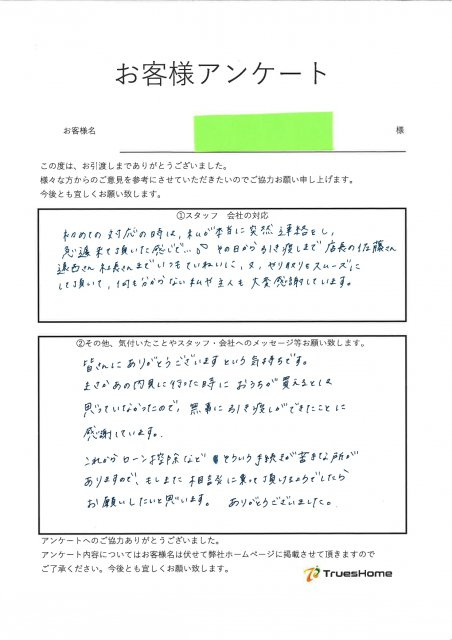 お客様アンケート
お客様名
様
この度は、お引渡しまでありがとうございました。
様々な方からのご意見を参考にさせていただきたいのでご協力お願い申し上げます。
今後とも宜しくお願い致します。
①スタッフ　会社の対応
初めての対応の時は、私が本当に突然連絡をし、
急遽来て頂いた感じで… その日から引き渡しまで店長の佐藤さん
さん 社長さんまでいつもていねいに、又、やり取りもスムーズに
して頂いて、何も分からない私や主人も大変感謝しています。
②その他、気付いたことやスタッフ・会社へのメッセージ等お願い致します。
皆さんにありがとうございますという気持ちです。
まさかあの内見に行った時におうちが買えるとは
思っていなかったので、無事に引き渡しができたことに
感謝しています。
これからローン控除など そういう手続きが苦手な所が
ありますので、もしまた相談に乗って頂けるようでしたら
お願いしたいと思います。 ありがとうございました。
アンケートへのご協力ありがとうございました。
アンケート内容についてはお客様名は伏せて弊社ホームページに掲載させて頂きますので
ご了承ください。今後とも宜しくお願い致します。
TruesHome